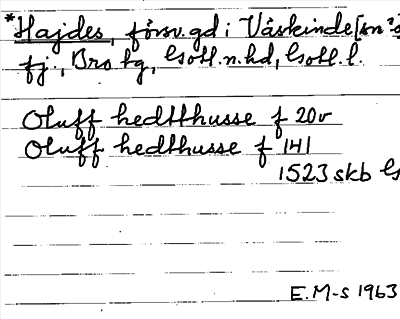 *Hajdes, försv.gd i Väskinde [sn?s
fj., Bro tg, Gotl.n.hd, Gotl.l.
Oluff hedtthusse f 20v
Oluff hedthusse f 141
1523 skb G
E.M-s 1963